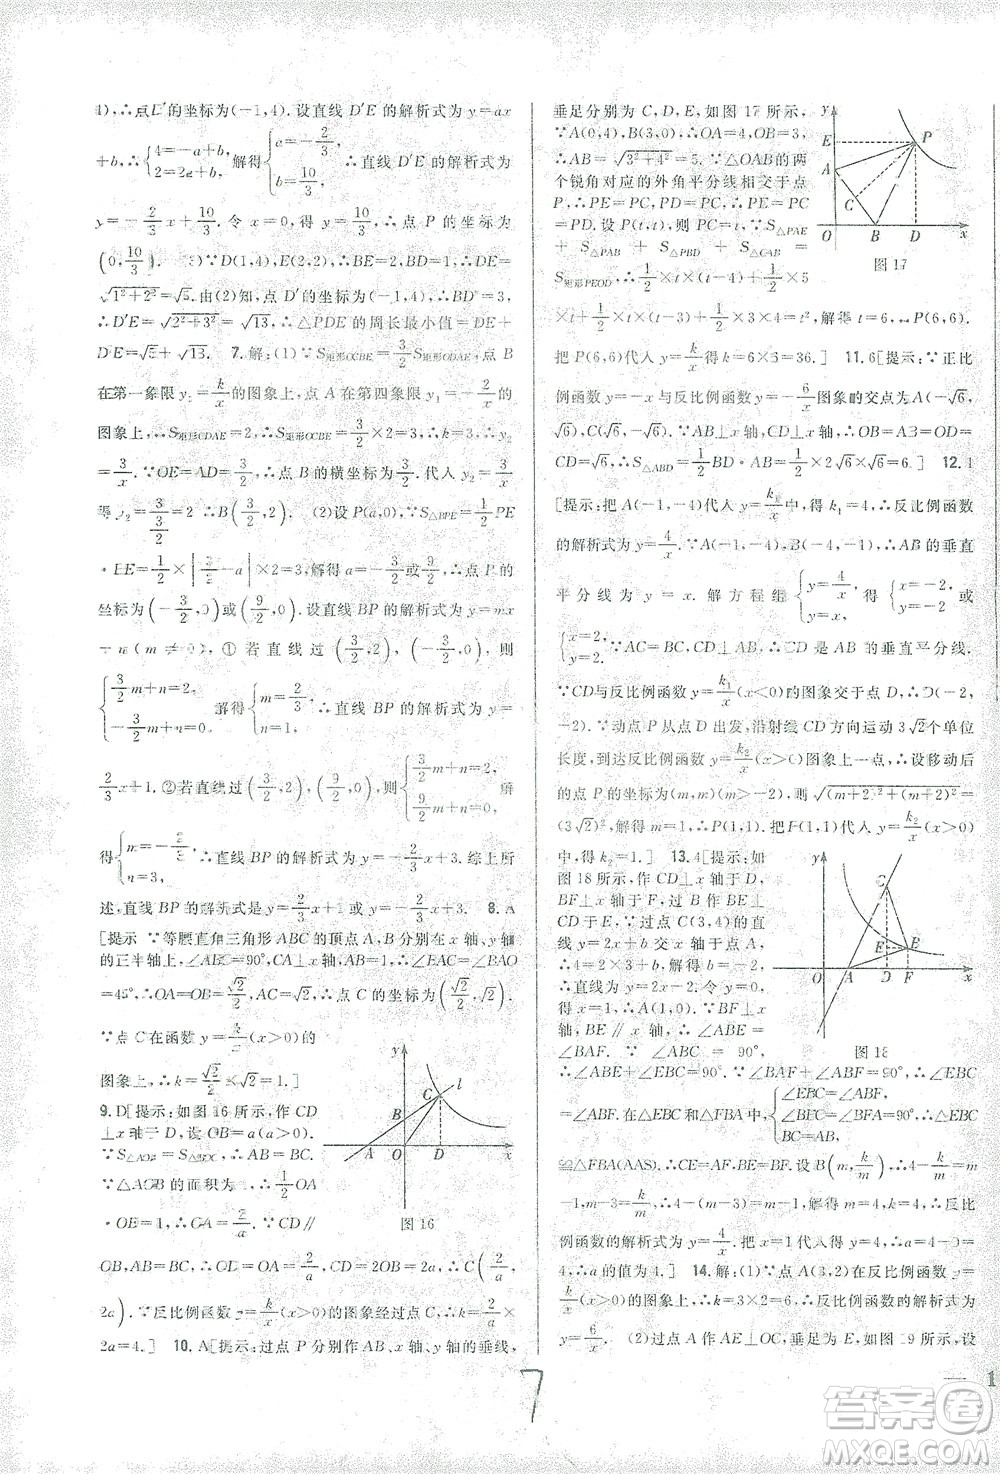 4),∴点D′的坐标为(-1,4).设直线D′E的解析式为y=ax
+b,∴{4=-a+b, 2=2a+b, 解得{a=-2/3, b=10/3, ∴直线D′E的解析式为
y=-2/3x+10/3.令x=0,得y=10/3,∴点P的坐标为
(0,10/3). (3)∵D(1,4),E(2,2),∴BE=2,BD=1,∴DE=
√1²+2²=√5.由(2)知,点D′的坐标为(-1,4),∵BE=2,BD′=
3,∴D′E=√2²+3²=√13,∴△PDE的周长最小值=DE+
D′E=√5+√13. 7.解:(1)∵S矩形OCBE=3/2S矩形ODAE,点B
在第一象限y₂=k/x的图象上,点A在第四象限y₁=-2/x的
图象上,∴S矩形ODAE=2,∴S矩形OCBE=3/2×2=3,∴k=3,∴y₂
=3/x.∵OE=AD=3/2,∴点B的横坐标为3/2.代入y₂=3/x,
得y₂=3/(3/2)=2,∴B(3/2,2). (2)设P(a,0),∵S△BPE=1/2PE
·BE=1/2×|3/2-a|×2=3,解得a=-3/2或9/2,∴点P的
坐标为(-3/2,0)或(9/2,0).设直线BP的解析式为y=mx
+n(m≠0),①若直线过(3/2,2),(-3/2,0),则
{3/2m+n=2, -3/2m+n=0, 解得{m=2/3, n=1, ∴直线BP的解析式为y=
2/3x+1,②若直线过(3/2,2),(9/2,0),则{3/2m+n=2, 9/2m+n=0, 解
得{m=-2/3, n=3, ∴直线BP的解析式为y=-2/3x+3.综上所
述,直线BP的解析式是y=2/3x+1或y=-2/3x+3. 8.A
[提示:∵等腰直角三角形ABC的顶点A,B分别在x轴、y轴
的正半轴上,∠ABC=90°,CA⊥x轴,∴∠BAC=∠BAO
=45°,∴OA=OB=√2/2,AC=√2,∴点C的坐标为(√2/2,√2).
∵点C在函数y=k/x(x>0)的
图象上,∴k=√2/2×√2=1.]
9.D[提示:如图16所示,作CD
⊥x轴于D,设OB=a(a>0).
∵S△AOB=S△BOC,∴AB=BC.
∵△AOB的面积为1,∴1/2OA
·OB=1,∴OA=2/a.∵CD∥
OB,AB=BC,∴OD=OA=2/a,CD=2OB=2a,∴C(2/a,
2a).∵反比例函数y=k/x(x>0)的图象经过点C,∴k=2/a×
2a=4.] 10.A[提示:过点P分别作AB、x轴、y轴的垂线,
y
C
l
B
A
O
D
x
图16
垂足分别为C,D,E,如图17所示.
∵A(0,4),B(3,0),∴OA=4,OB=3,
∴AB=√3²+4²=5.∵△OAB的两
个锐角对应的外角平分线相交于点
P,∴PE=PC,PD=PC,∴PE=PC=
PD.设P(t,t),则PC=t,∵S△PAE
+S△PAB+S△PBD+S△OAB=
S矩形PEOD,∴1/2×t×(t-4)+1/2×5
×t+1/2×t×(t-3)+1/2×3×4=t²,解得t=6,∴P(6,6).
把P(6,6)代入y=k/x得k=6×6=36.] 11.6[提示:∵正比
例函数y=-x与反比例函数y=-6/x图象的交点为A(-√6,
√6),C(√6,-√6),AB⊥x轴,CD⊥x轴,∴OB=AB=OD=
CD=√6,∴S△ABD=1/2AB·BD=1/2×2√6×√6=6.] 12.1
[提示:把A(-1,-4)代入y=k₁/x中,得k₁=4,∴反比例函数
的解析式为y=4/x.∵A(-1,-4),B(-4,-1),∴AB的垂直
平分线为y=x.解方程组{y=4/x, y=x, 得{x=-2, y=-2 或
{x=2, y=2.∵AC=BC,CD⊥AB,∴CD是AB的垂直平分线.
∵CD与反比例函数y=k₁/x(x<0)的图象交于点D,∴D(-2,
-2).∵动点P从点D出发,沿射线CD方向运动3√2个单位
长度,到达反比例函数y=k₂/x(x>0)图象上一点,∴设移动后
的点P的坐标为(m,m)(m>0),则√(m+2)²+(m+2)²=
(3√2)²,解得m=1,∴P(1,1).把P(1,1)代入y=k₂/x(x>0)
中,得k₂=1.] 13.4[提示:如
图18所示,作CD⊥x轴于D,
BF⊥x轴于F,BE⊥CD于
E,∵过点C(3,4)的直线y=
2x+b交x轴于点A,∴4=2
×3+b,解得b=-2,
∴直线为y=2x-2.令y=0,
得x=1,∴A(1,0).∵BF⊥x
轴,BE∥x轴,∴∠ABE=
∠BAF.∵∠ABC=90°,
∴∠ABE+∠EBC=90°.∵∠BAF+∠ABF=90°,∴∠EBC
=∠ABF.在△EBC和△FBA中{∠EBC=∠FBA, ∠BEC=∠BFA=90°, BC=AB, ∴△EBC
≌△FBA(AAS),∴CE=AF,BE=BF.设B(m,k/m),∵4-k/m=m
-1,m-3=k/m,∴4-(m-3)=m-1,解得m=4,k=4,∴反比
例函数的解析式为y=4/x.把x=1代入得y=4,∴a=4-0=
4,∴a的值为4.] 14.解:(1)∵点A(3,2)在反比例函数y=
k/x(x>0)的图象上,∴k=3×2=6,∴反比例函数的解析式为
y=6/x. (2)过点A作AE⊥OC,垂足为E,如图19所示,设
y
E
P
A
C
O
B
D
x
图17
y
C
E
B
O
A
D
F
x
图18
7
1
答案圈
MXQE.COM